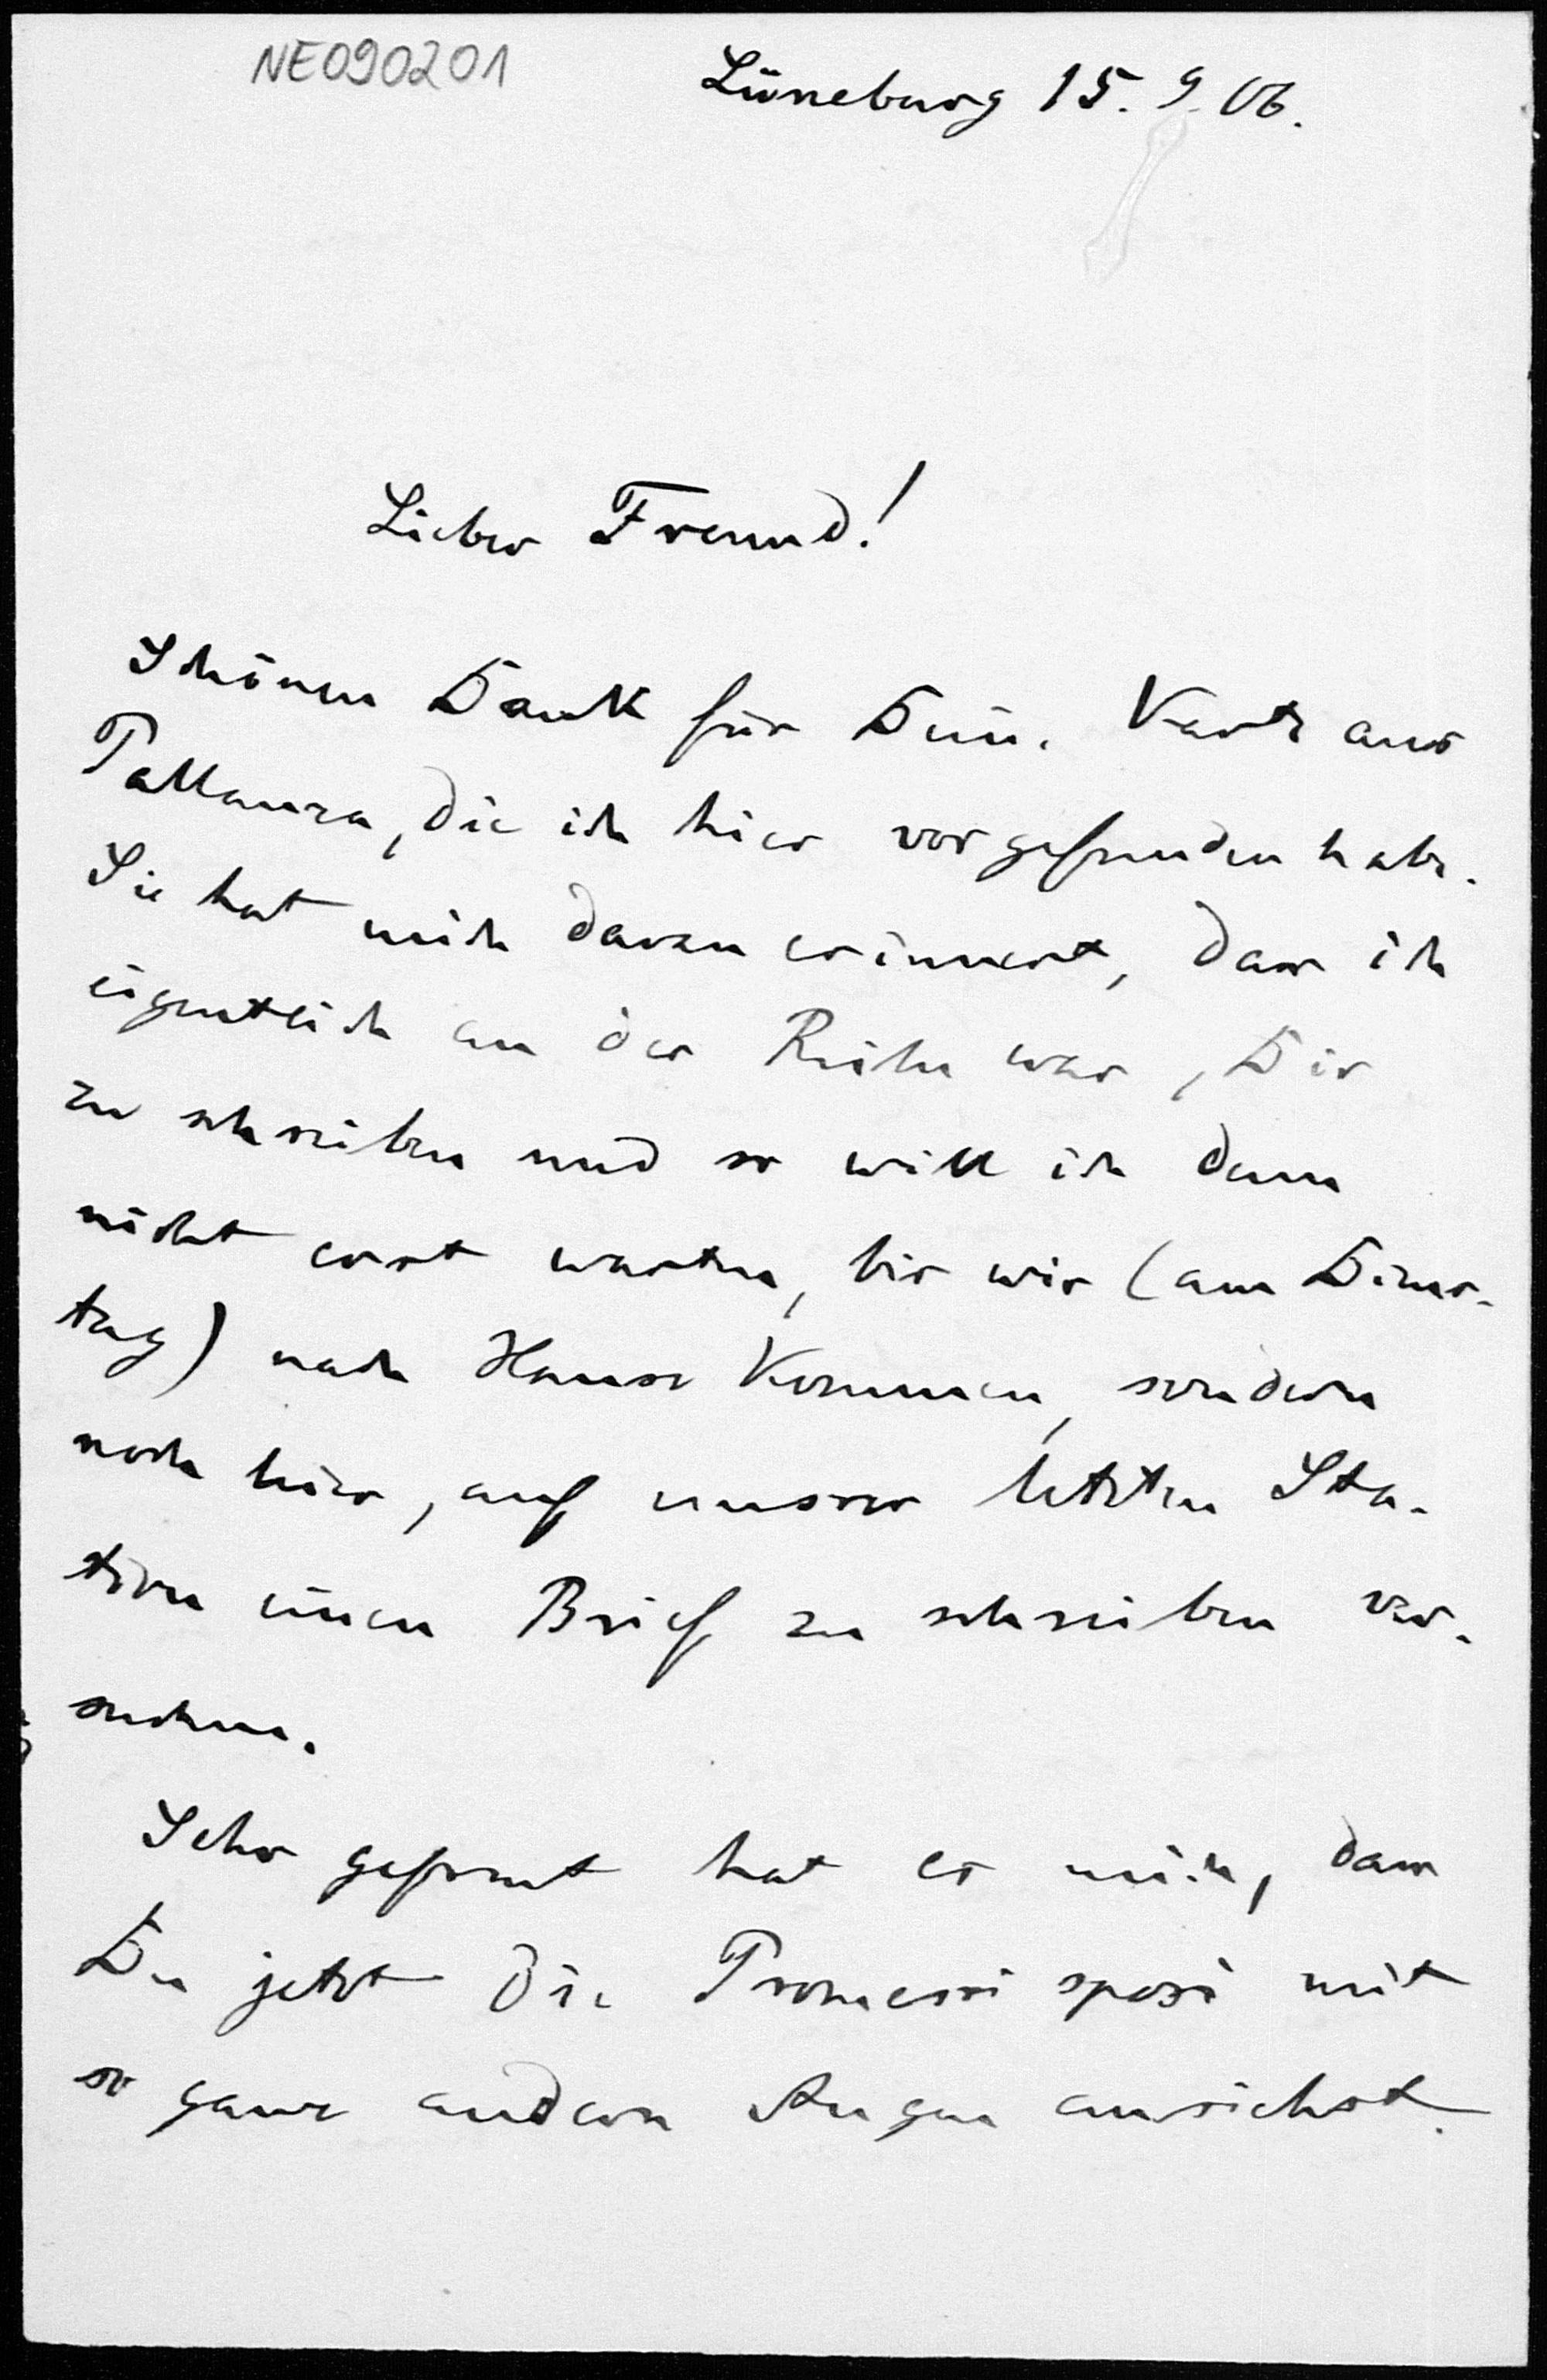 NE090201
Lüneburg 15. 9. 06.
Lieber Freund!
Schönen Dank für Deine Karte aus
Pallanza, die ich hier vorgefunden habe.
Sie hat mich daran erinnert, dass ich
eigentlich an der Reihe war, Dir
zu schreiben und so will ich denn
nicht erst warten, bis wir (am Diens-
tag) nach Hause kommen, sondern
noch hier, auf unsrer letzten Sta-
tion einen Brief zu schreiben ver-
suchen.
Sehr gefreut hat es mich, dass
Du jetzt die Promessi sposi mit
so ganz andern Augen ansiehst.